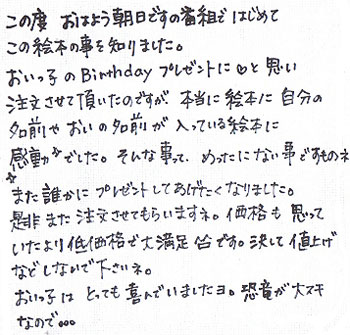 この度 おはよう朝日ですの番組で はじめて
この絵本の事を知りました。
おいっ子のBirthdayプレゼントに♡と思い
注文させて頂いたのですが 本当に絵本に自分の
名前やおいの名前が入っている絵本に
感動☆でした。そんな事って、めったにない事ですものネ
☆また誰かにプレゼントしてあげたくなりました。
是非また注文させてもらいますネ。価格も思って
いたより低価格で大満足です。決して値上げ
などしないで下さいネ。
おいっ子は とっても喜んでいましたヨ。恐竜が大スキ
なので...